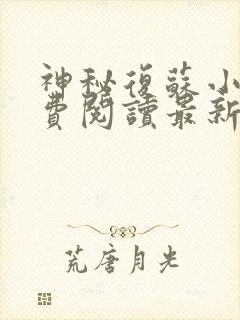 神秘復蘇小
費閱讀最新
荒唐月光